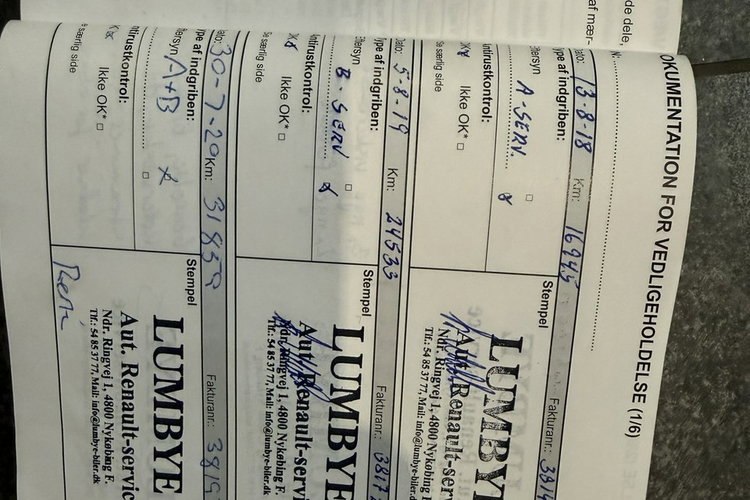 de dele,
af mær-
OKUMENTATION FOR VEDLIGEHOLDELSE (1/6)
Dato: 13-8-18 Km: 16945 Fakturanr.: 3814
ype af indgriben: Stempel
ftersyn
A-SERV.
ntirustkontrol:
Ikke OK*
e særlig side
LUMBYE
Aut. Renault-servic
Ndr. Ringvej 1, 4800 Nykøbing F.
Tlf.: 54 85 37 77, Mail: info@lumbye-biler.dk
Dato: 5-8-19 Km: 24533 Fakturanr.: 3817
ype af indgriben: Stempel
ftersyn
B-SERV
ntirustkontrol:
Ikke OK*
e særlig side
LUMBYE
Aut. Renault-servic
Ndr. Ringvej 1, 4800 Nykøbing F.
Tlf.: 54 85 37 77, Mail: info@lumbye-biler.dk
ato: 30-7-20 Km: 31859 Fakturanr.: 3819
ype af indgriben: Stempel
ftersyn A+B
ntirustkontrol:
Ikke OK*
e særlig side
LUMBYE
Aut. Renault-servic
Ndr. Ringvej 1, 4800 Nykøbing F.
Tlf.: 54 85 37 77, Mail: info@lumbye-biler.dk